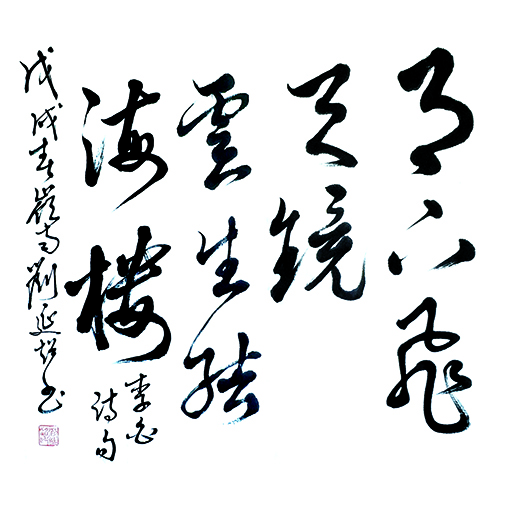 月下飛
天鏡
雲生結
海樓
李白
詩句
戊戌春嶺南劉延超书